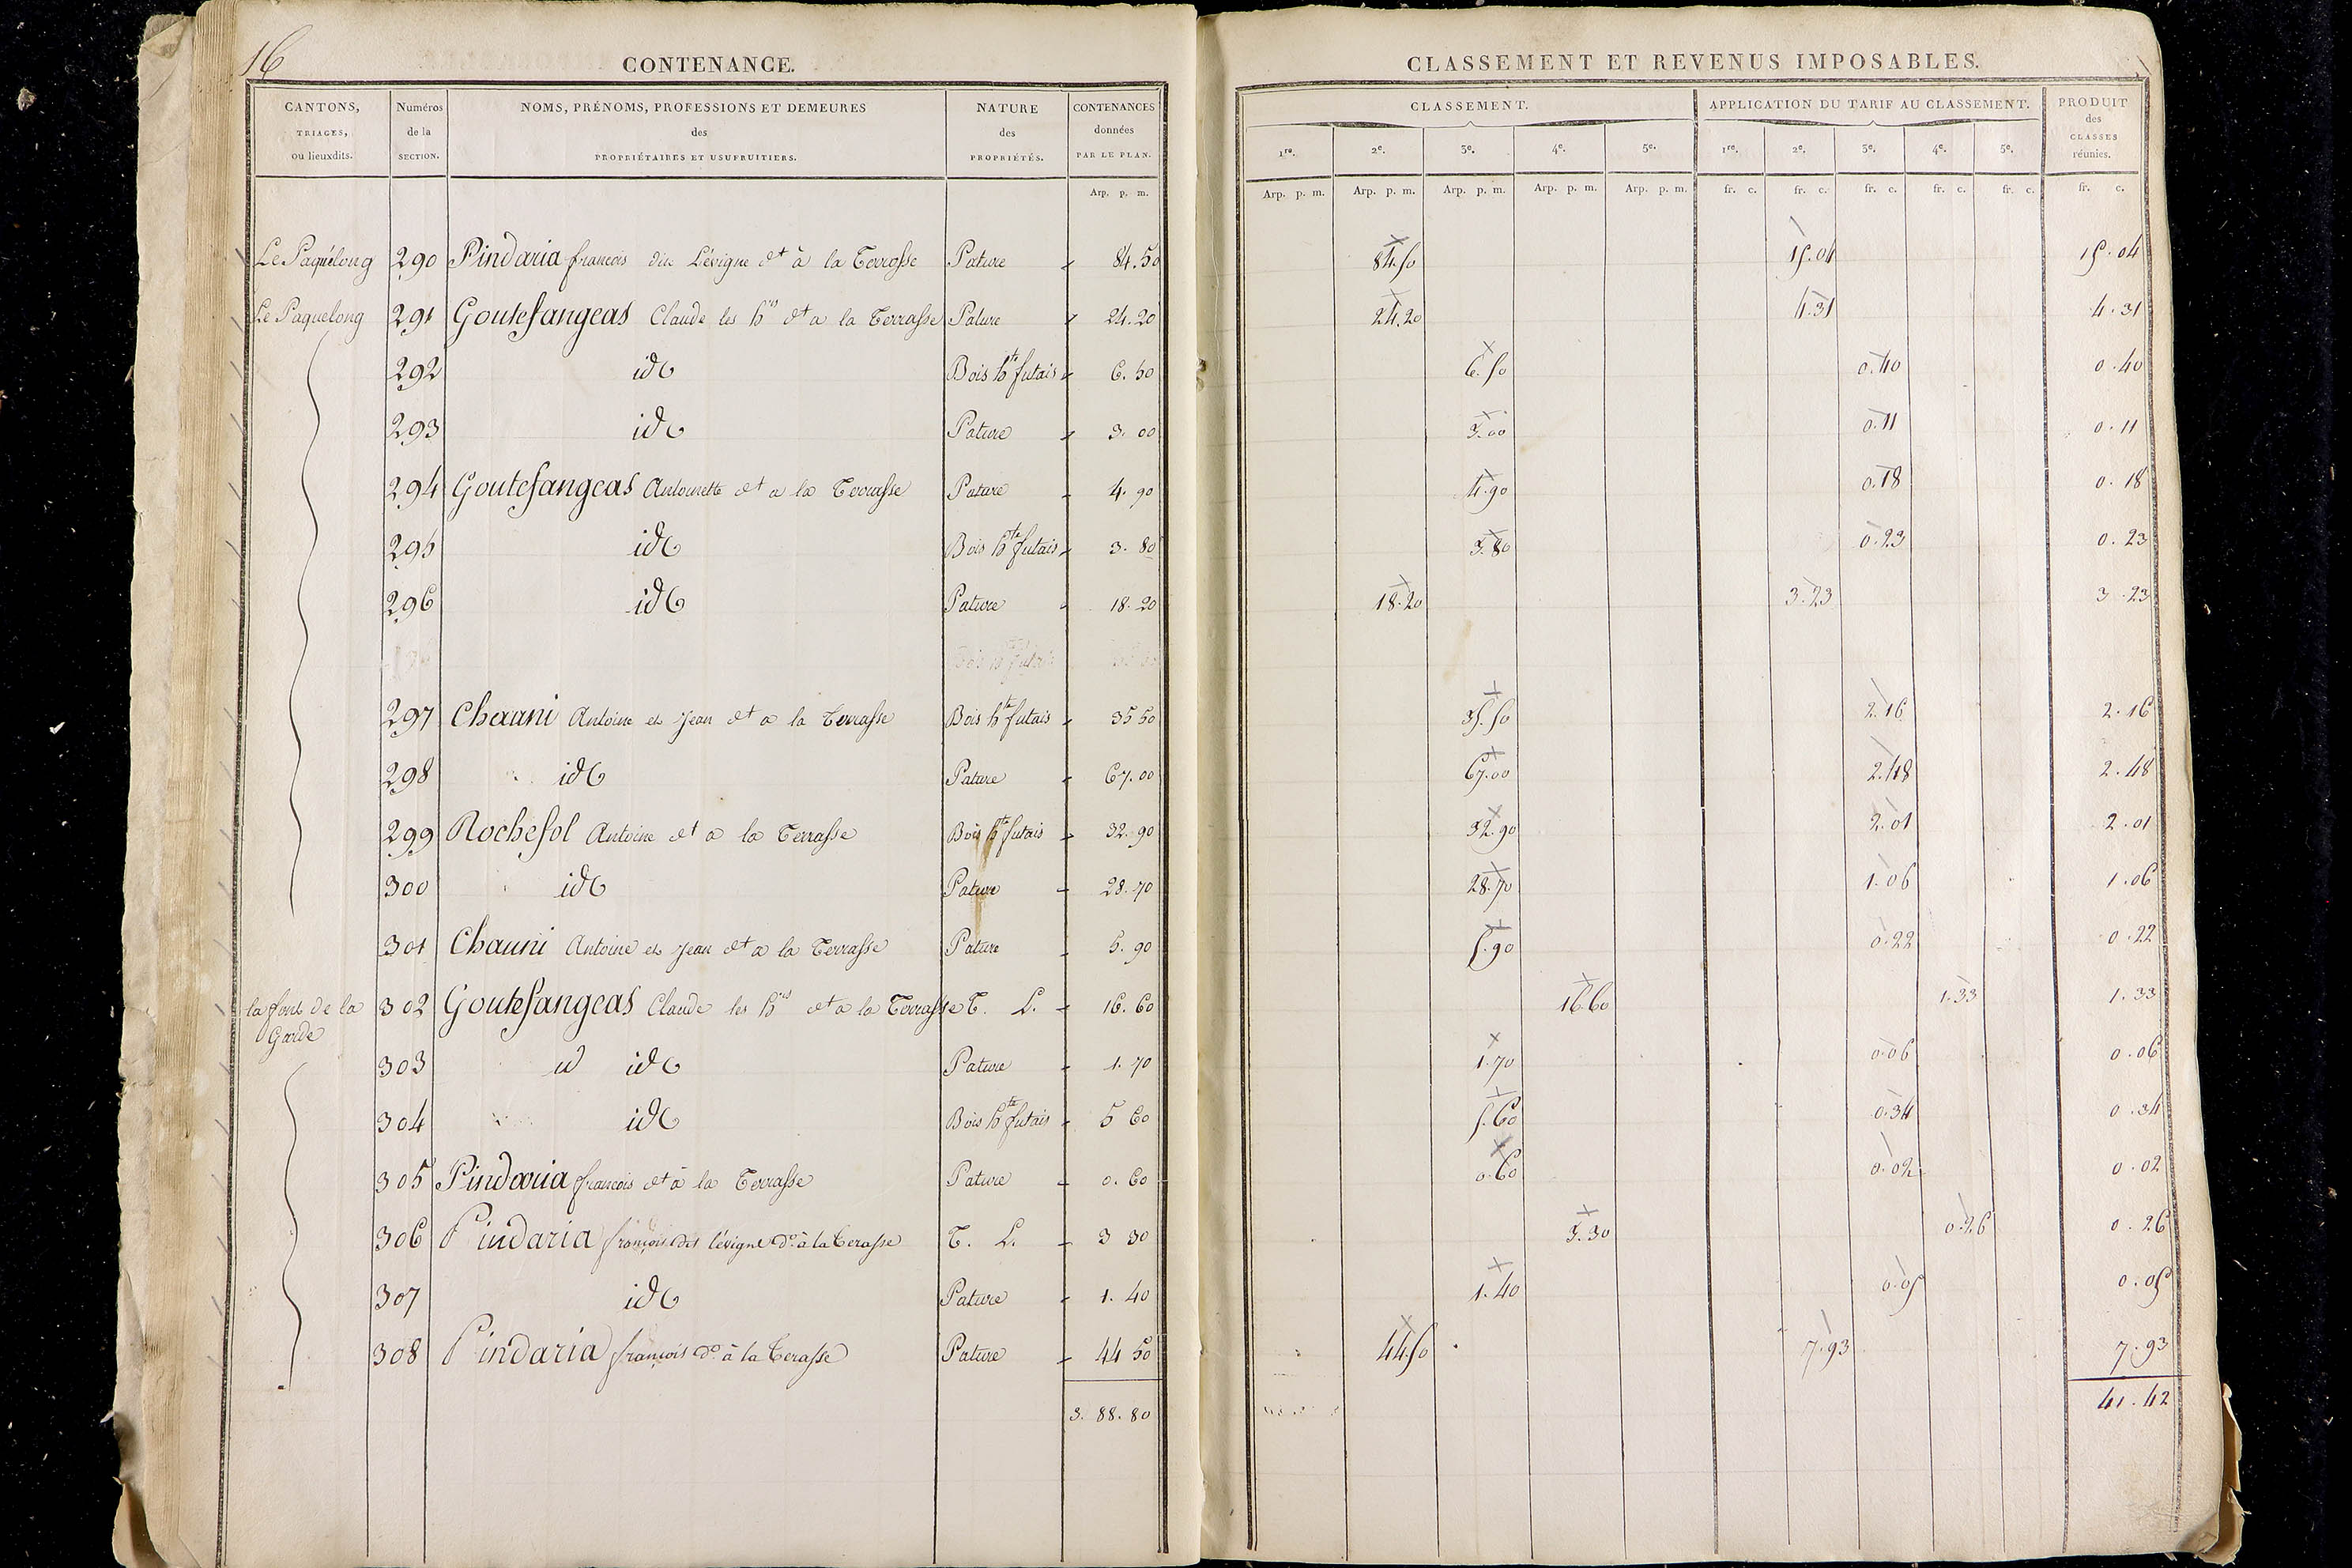 16
CONTENANCE.
CANTONS, TRIAGES, ou lieuxdits. | Numéros de la SECTION. | NOMS, PRÉNOMS, PROFESSIONS ET DEMEURES des PROPRIÉTAIRES ET USUFRUITIERS. | NATURE des PROPRIÉTÉS. | CONTENANCES données PAR LE PLAN.
Arp. p. m.
Le Paquélong 290 Pindaria francois dit Lévigne dt à la Terrasse Pature 84.50
Le Paquelong 291 Goutefangeas Claude les hrs dt a la Terrasse Pature 24.20
292 id Bois hte futais 6.50
293 id Pature 3.00
294 Goutefangeas Antoinette dt a la Terrasse Pature 4.90
295 id Bois hte futais 3.80
296 id Pature 18.20
Bois hte futais
297 Chauni Antoine et Jean dt a la Terrasse Bois hte futais 35 50
298 id Pature 67.00
299 Rochefol Antoine dt a la Terrasse Bois hte futais 32.90
300 id Pature 28.70
301 Chauni Antoine et Jean dt a la Terrasse Pature 5.90
la font de la Garde 302 Goutefangeas Claude les hrs dt a la Terrasse T. L. 16.60
303 id Pature 1.70
304 id Bois hte futais 5 60
305 Pindaria francois dt à la Terrasse Pature 0.60
306 Pindaria françois dit lévigne do. à la Terasse T. L. 3 30
307 id Pature 1.40
308 Pindaria françois do. à la Terasse Pature 44 50
3.88.80
CLASSEMENT ET REVENUS IMPOSABLES.
CLASSEMENT. | APPLICATION DU TARIF AU CLASSEMENT. | PRODUIT des CLASSES réunies.
1re. 2e. 3e. 4e. 5e. 1re. 2e. 3e. 4e. 5e.
Arp. p. m. Arp. p. m. Arp. p. m. Arp. p. m. Arp. p. m. fr. c. fr. c. fr. c. fr. c. fr. c. fr. c.
84.50 15.04 15.04
24.20 4.31 4.31
6.50 0.40 0.40
3.00 0.11 0.11
4.90 0.18 0.18
3.80 0.23 0.23
18.20 3.23 3.23
35.50 2.16 2.16
67.00 2.48 2.48
32.90 2.01 2.01
28.70 1.06 1.06
5.90 0.22 0.22
16.60 1.33 1.33
1.70 0.06 0.06
5.60 0.34 0.34
0.60 0.02 0.02
3.30 0.26 0.26
1.40 0.05 0.05
44.50 7.93 7.93
41.42